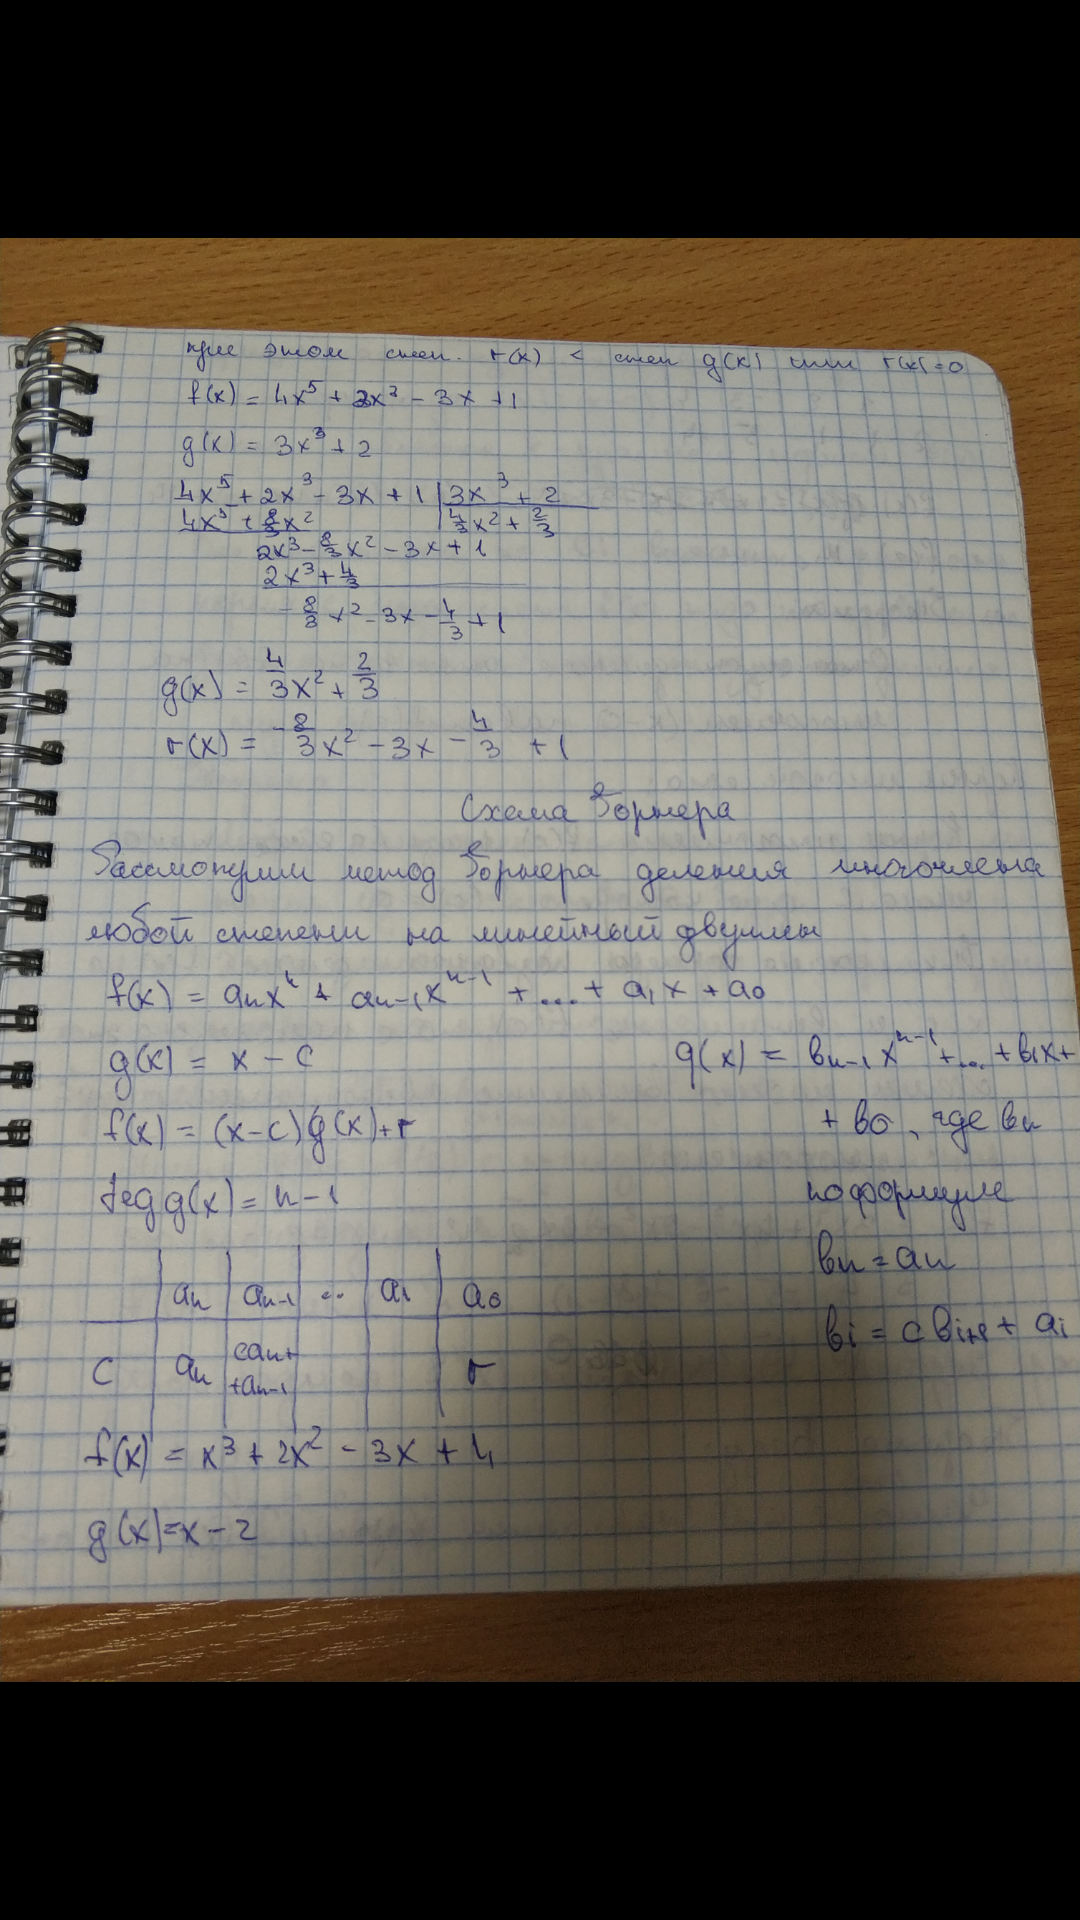 при этом степ. r(x) < степ g(x) или r(x)=0
f(x) = 4x⁵ + 2x³ - 3x + 1
g(x) = 3x³ + 2
4x⁵ + 2x³ - 3x + 1 | 3x³ + 2
4x⁵ + 8/3x² | 4/3x² + 2/3
2x³ - 8/3x² - 3x + 1
2x³ + 4/3
- 8/3x² - 3x - 4/3 + 1
g(x) = 4/3x² + 2/3
r(x) = -8/3x² - 3x - 4/3 + 1
Схема Горнера
Рассмотрим метод Горнера деления многочлена
любой степени на линейный двучлен
f(x) = aₙxⁿ + aₙ₋₁xⁿ⁻¹ + ... + a₁x + a₀
g(x) = x - c
f(x) = (x-c)g(x)+r
deg g(x) = n-1
g(x) = bₙ₋₁xⁿ⁻¹ + ... + b₁x +
+ b₀, где bₙ
по формуле
bₙ = aₙ
bᵢ = c bᵢ₊₁ + aᵢ
aₙ | aₙ₋₁ | ... | a₁ | a₀
c | aₙ | caₙ+ | r
+aₙ₋₁
f(x) = x³ + 2x² - 3x + 4
g(x)=x - 2